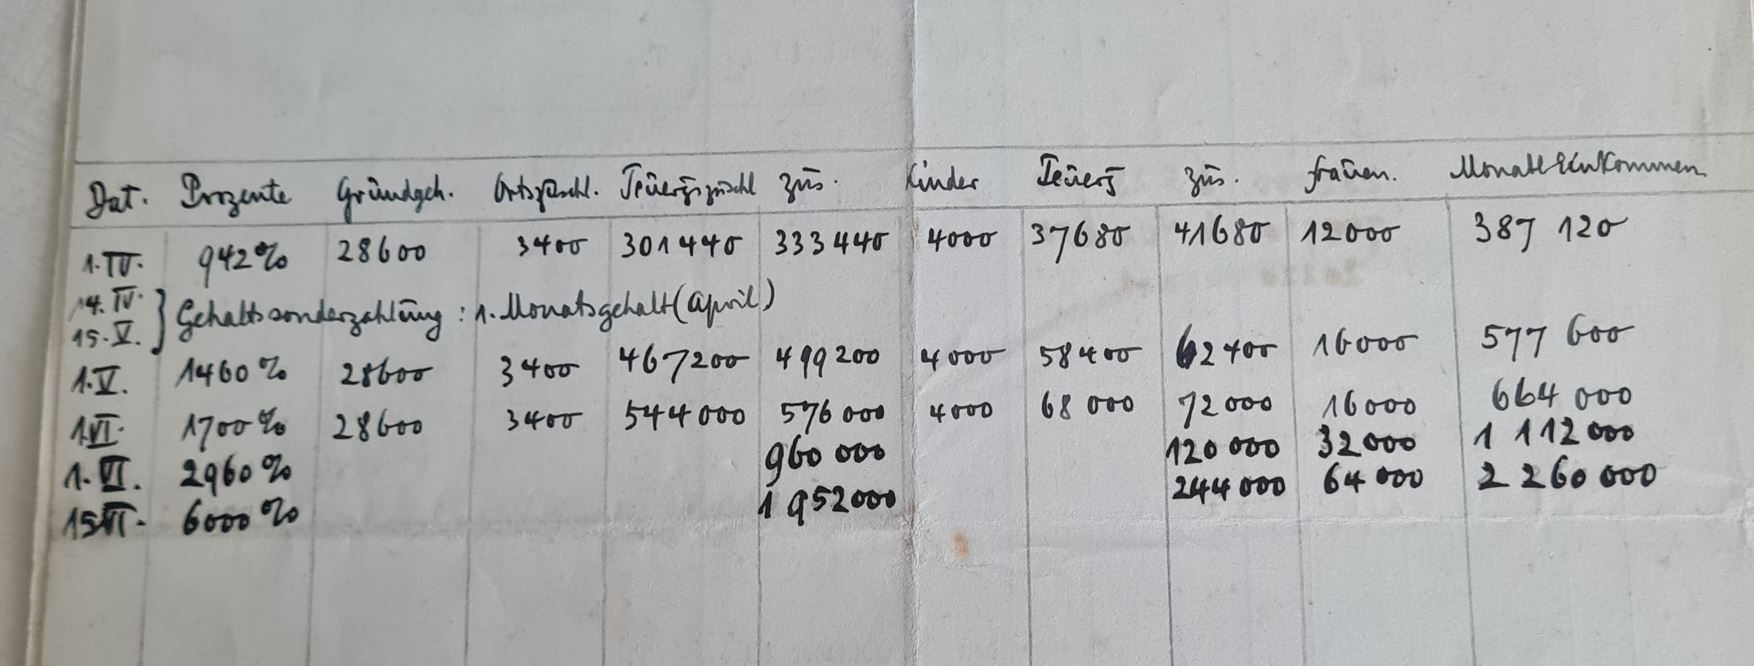 Dat. Prozente Grundgeh. Ortszuschl. Teuergszuschl zus. Kinder Teuerg zus. Frauen. Monatl Einkommen
1.IV. 942% 28600 3400 301440 333440 4000 37680 41680 12000 387 120
14. IV.
15. V. } Gehaltssonderzahlung : 1. Monatsgehalt (April)
1.V. 1460 % 28600 3400 467200 499200 4000 58400 62400 16000 577 600
1.VI. 1700 % 28600 3400 544000 576000 4000 68 000 72000 16000 664 000
1.VI. 2960 % 960 000 120 000 32000 1 112 000
15VI. 6000 % 1 952000 244 000 64 000 2 260 000